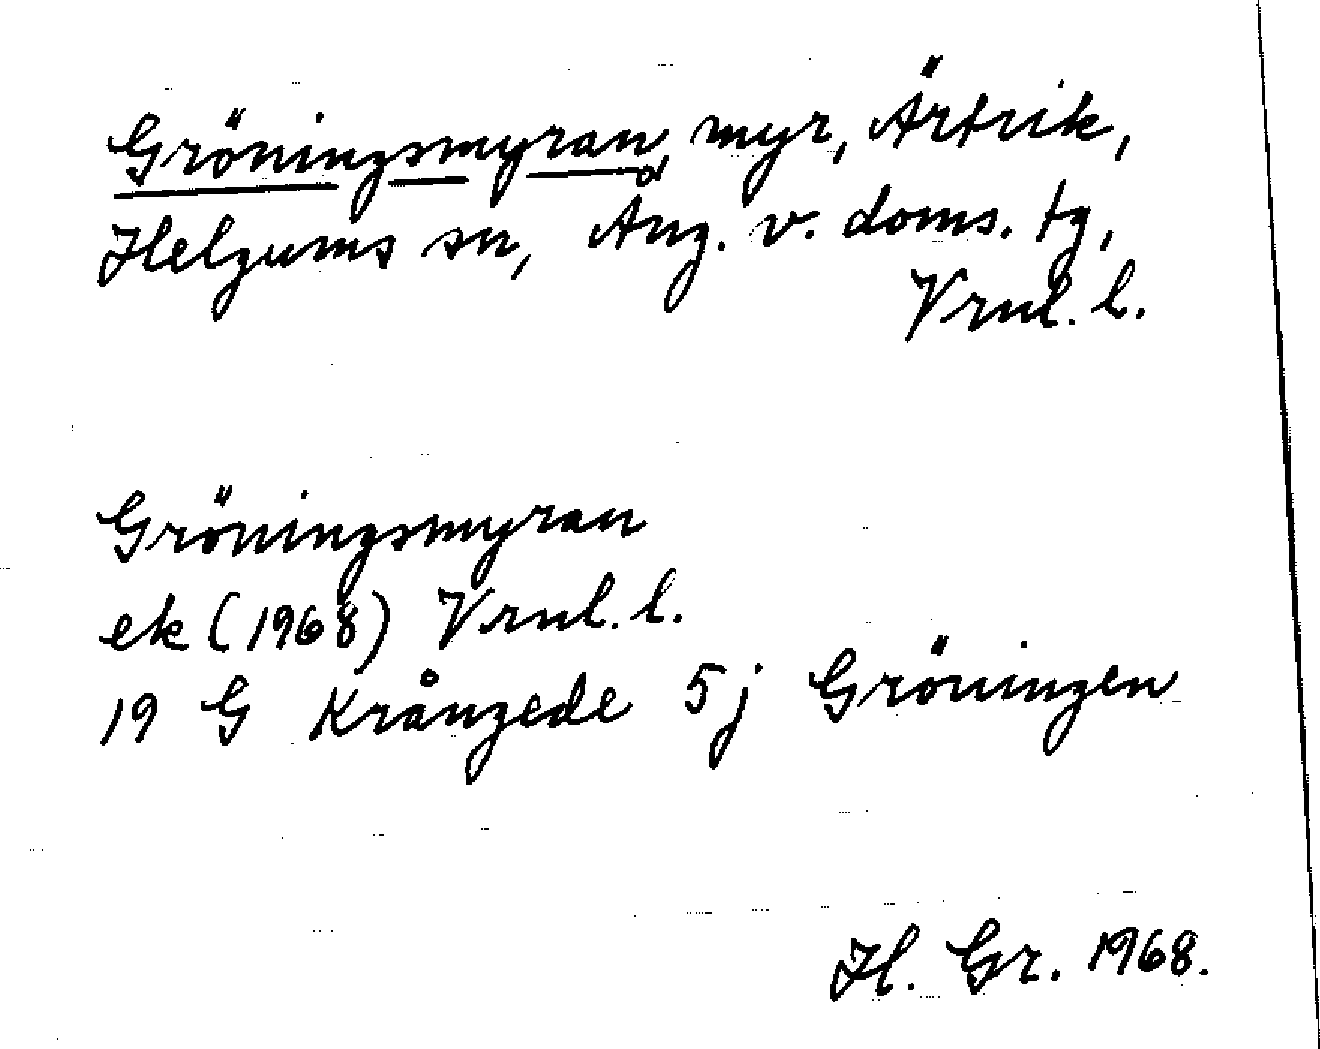 Gröningsmyran, myr, Ärtrik,
Helgums sn, Ång. v. doms. tg,
Vrnl. l.
Gröningsmyran
ek (1968) Vrnl. l.
19 G Krångede 5j Gröningen
H. Gr. 1968.